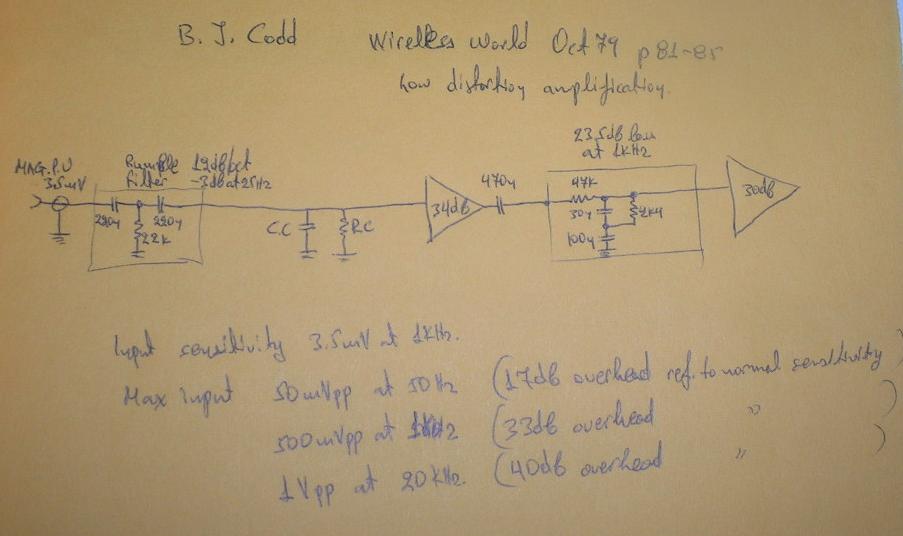 B. J. Codd Wireless World Oct 79 p 81-85
Low distortion amplification.
MAG. P.U 3.5mV
Rumble filter 12db/oct -3db at 25Hz
220y 220y
22K
C.C RC
34db
470y
23,5db loss at 1KHz
47K
30y 2K4
100y
30db
Input sensitivity 3.5mV at 1KHz.
Max input 50mVpp at 50Hz (17db overhead ref. to normal sensitivity)
500mVpp at 1KHz (33db overhead " )
1Vpp at 20KHz. (40db overhead " )